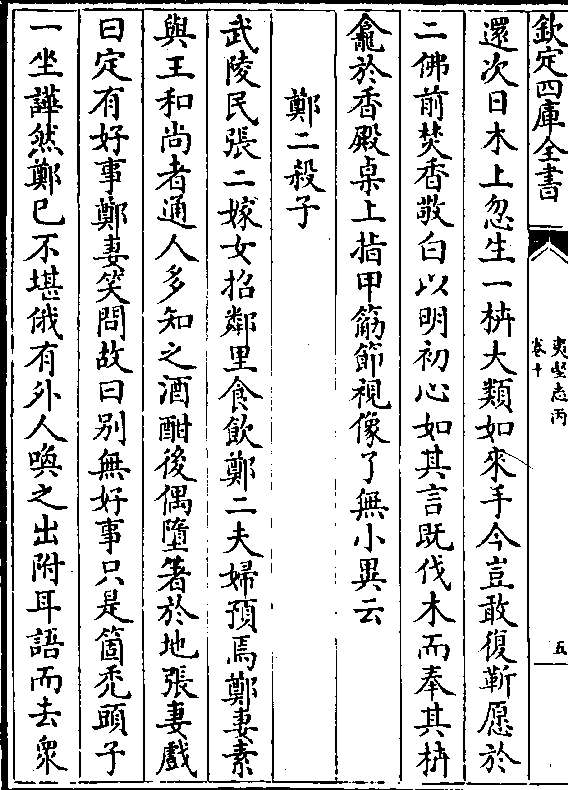 欽定四庫全書
夷堅志丙
卷十
五
還次日木上忽生一枿大類如來手今豈敢復靳愿於
二佛前焚香敬白以明初心如其言既伐木而奉其枿
龕於香殿桌上指甲筯節視像了無小異云
鄭二殺子
武陵民張二嫁女招鄰里食飲鄭二夫婦預焉鄭妻素
與王和尚者通人多知之酒酣後偶墮箸於地張妻戲
曰定有好事鄭妻笑問故曰別無好事只是箇禿頭子
一坐譁然鄭已不堪俄有外人喚之出附耳語而去衆